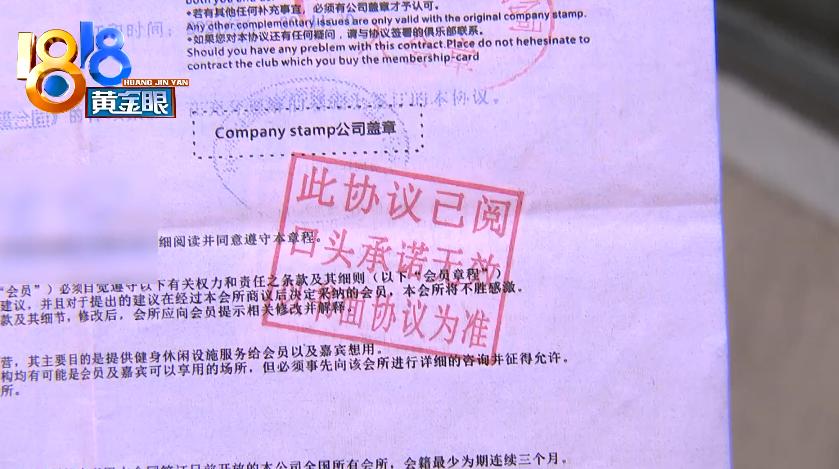 both you and us.
•若有其他任何补充事宜，必须有公司盖章才予认可。
Any other complementary issues are only valid with the original company stamp.
•如果您对本协议还有任何疑问，请与协议签署的俱乐部联系。
Should you have any preblem with this contract.Place do not hehesinate to
contract the club which you buy the membership-card
1818
HUANG JIN YAN
黄金眼
的本协议。
Company stamp公司盖章
此协议已阅
口头承诺无效
书面协议为准
细阅读并同意遵守本章程。
"会员"）必须自觉遵守以下有关权力和责任之条款及其细则（以下"会员章程"）
建议，并且对于提出的建议在经过本会所商议后决定采纳的会员，本会所将不胜感激。
款及其细节，修改后，会所应向会员提示相关修改并解释。
营，其主要目的是提供健身休闲设施服务给会员以及嘉宾想用。
构均有可能是会员及嘉宾可以享用的场所，但必须事先向该会所进行详细的咨询并征得允许。
所。
开放的本公司全国所有会所，会籍最少为期连续三个月。